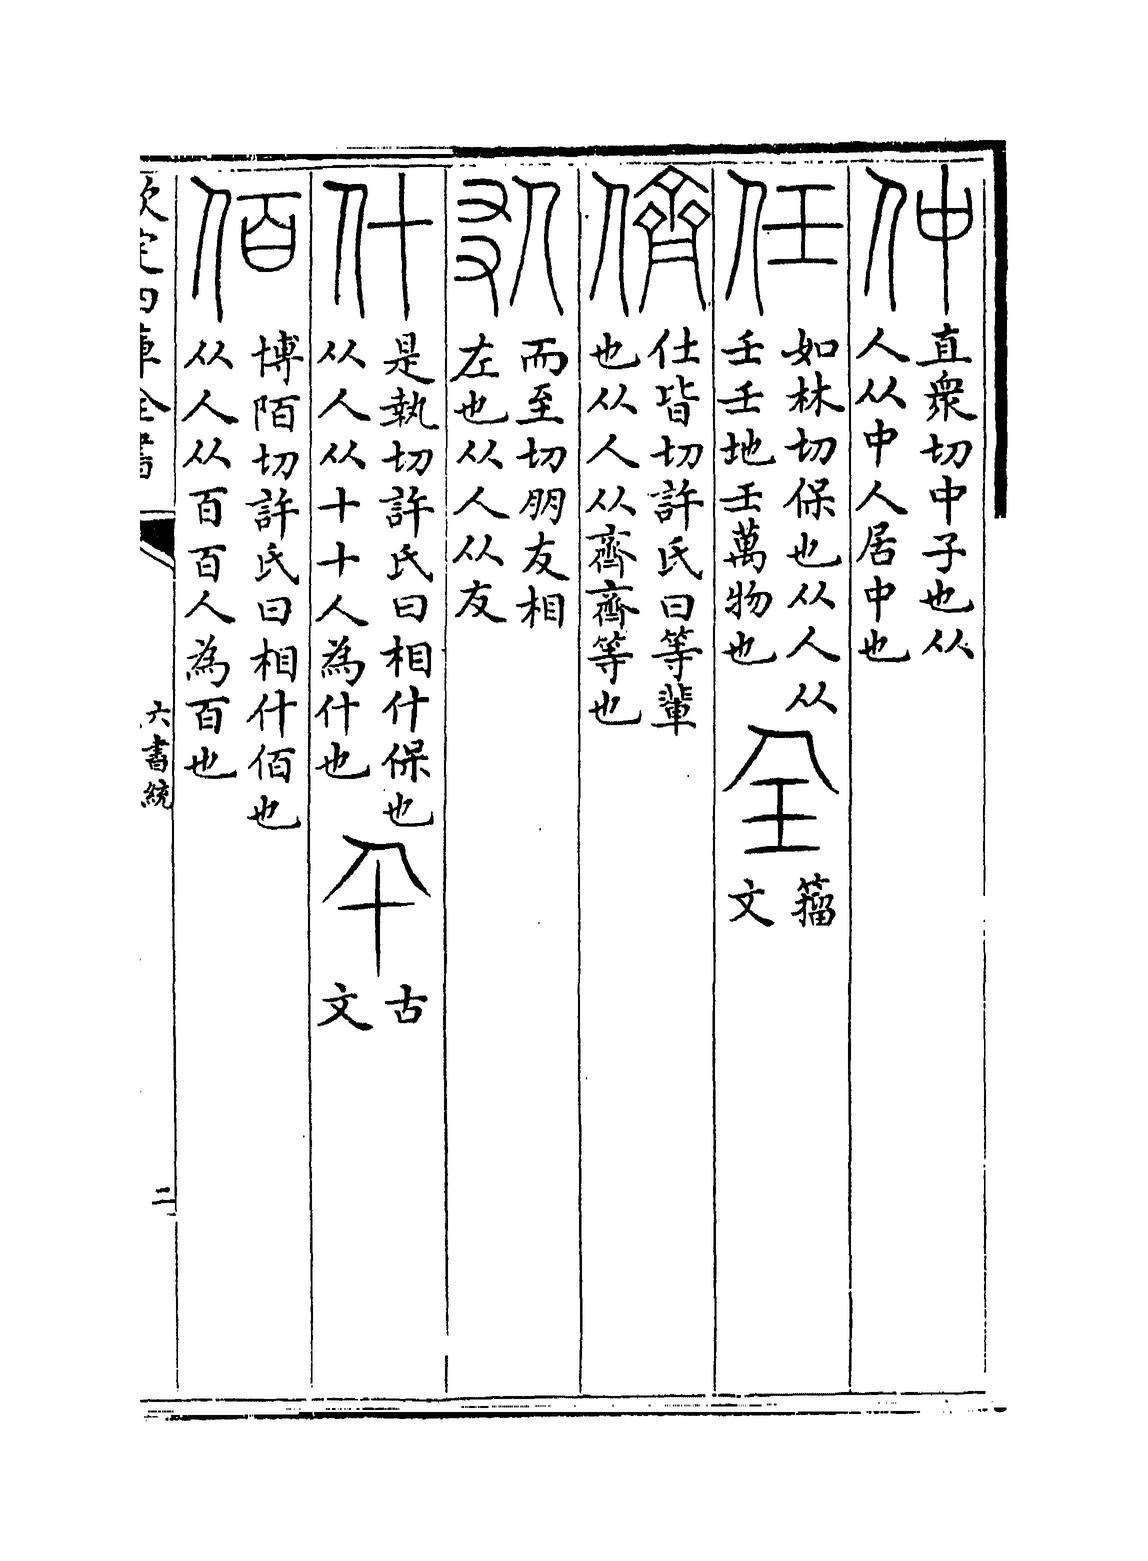 仲
直衆切中子也从
人从中人居中也
任
如林切保也从人从
壬壬地壬萬物也
仝
籀
文
儕
仕皆切許氏曰等輩
也从人从齊齊等也
而至切朋友相
左也从人从友
什
是執切許氏曰相什保也
从人从十十人為什也
古
文
佰
博陌切許氏曰相什佰也
从人从百百人為百也
欽定四庫全書
六書統
二